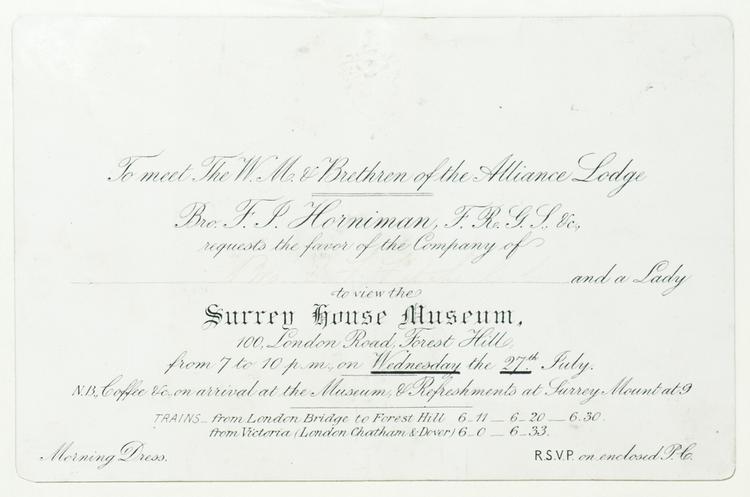 To meet The W. M. & Brethren of the Alliance Lodge
Bro. F. J. Horniman, F. R. G. S., &c.,
requests the favor of the Company of
and a Lady
to view the
Surrey House Museum,
100, London Road, Forest Hill,
from 7 to 10 p.m., on Wednesday the 27th July.
N.B., Coffee &c., on arrival at the Museum, & Refreshments at Surrey Mount at 9
TRAINS _ from London Bridge to Forest Hill 6_11 _ 6_20 _ 6.30.
from Victoria (London Chatham & Dover) 6_0 _ 6_33.
Morning Dress.
R.S.V.P. on enclosed P.C.